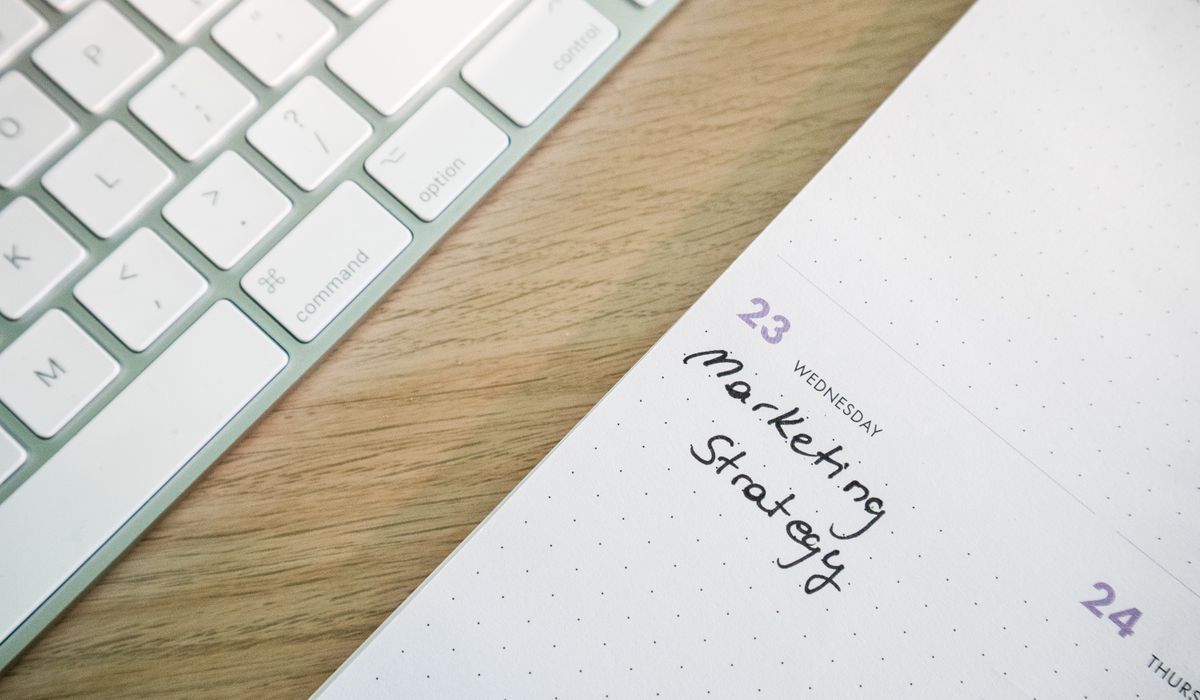 P
O
L
K
M
" '
: ;
? /
> .
< ,
control
option
⌘
command
23
WEDNESDAY
Marketing
Strategy
24
THURS